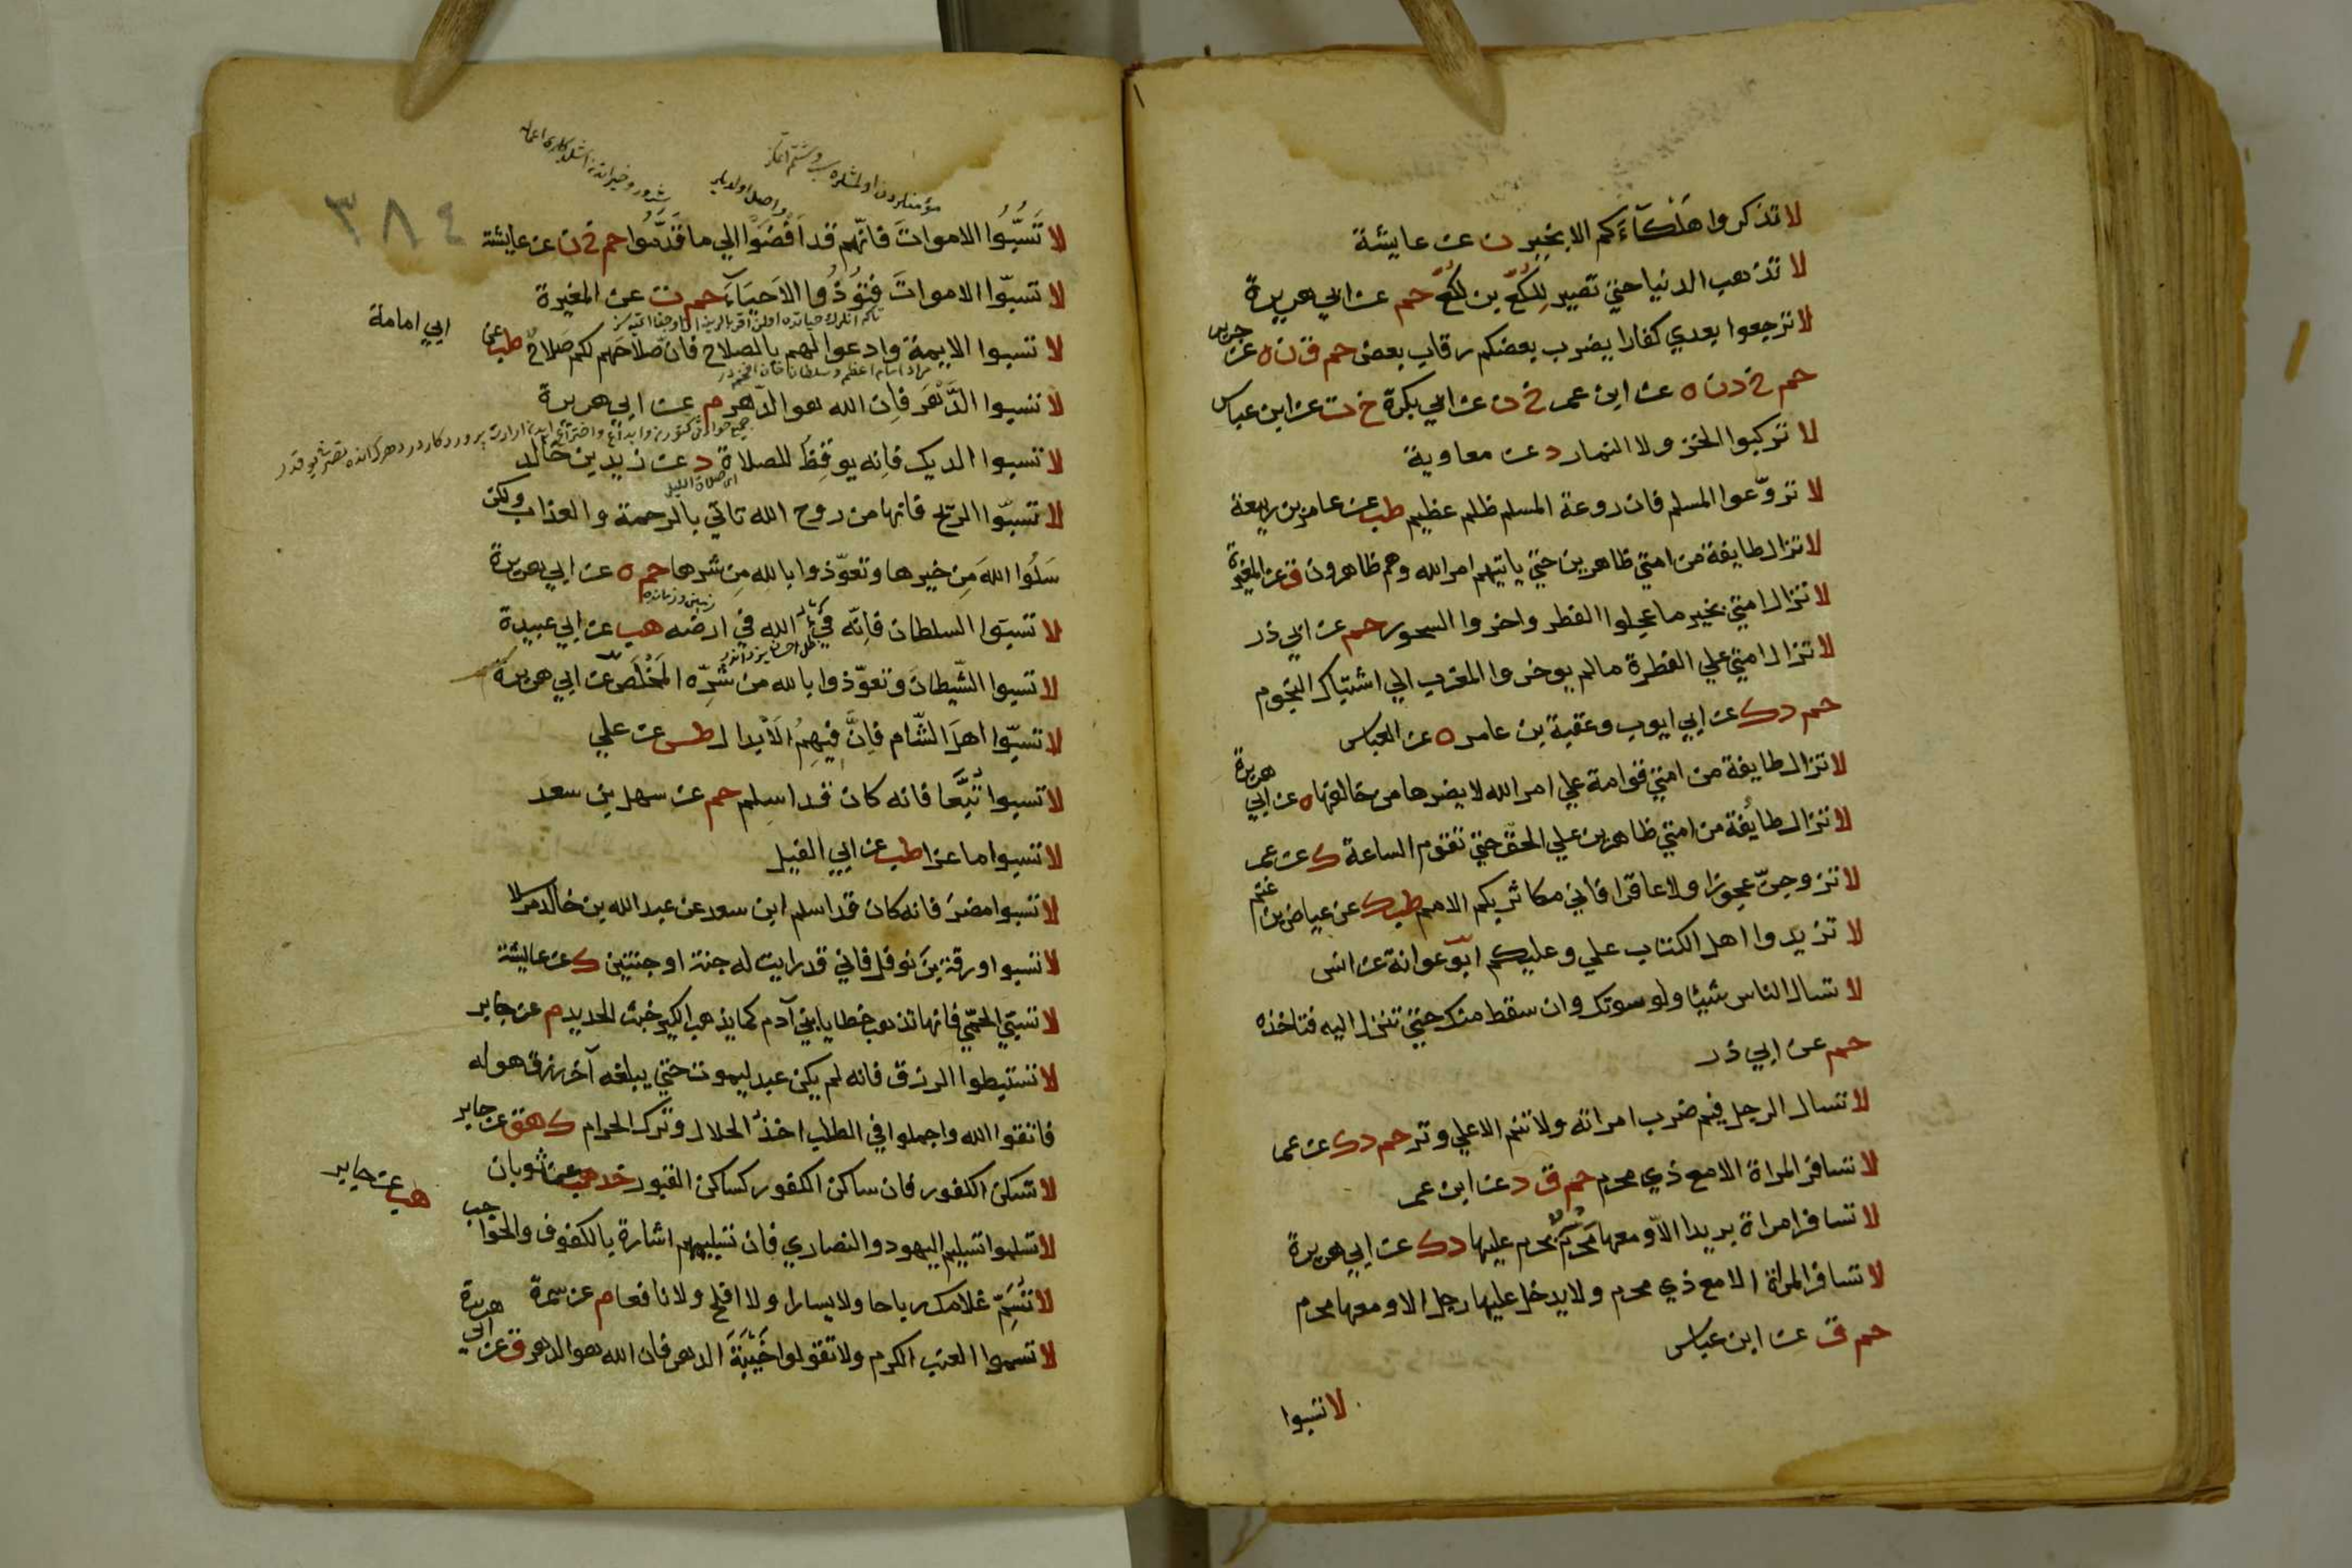 لا تذكروا هلكاءكم الا بخير ن عن عايشة
لا تذهب الدنيا حتي تصير للكع بن لكع حم عن ابي هريرة
لا ترجعوا بعدي كفارا يضرب بعضكم رقاب بعض حم ق ن ه عن جرير
حم خ د ن ه عن ابن عمر خ ن عن ابي بكرة خ ت عن ابن عباس
لا تركبوا الخز ولا النمار د عن معاوية
لا تروّعوا المسلم فان روعة المسلم ظلم عظيم طب عن عامر بن ربيعة
لا تزال طايفة من امتي ظاهرين حتي ياتيهم امر الله وهم ظاهرون ق عن المغيرة
لا تزال امتي بخير ما عجلوا الفطر واخروا السحور حم عن ابي ذر
لا تزال امتي علي الفطرة ما لم يوخروا المغرب الي اشتباك النجوم
حم د ك عن ابي ايوب وعقبة بن عامر ه عن العباس
لا تزال طايفة من امتي قوامة علي امر الله لا يضرها من خالفها ه عن ابي هريرة
لا تزال طايفة من امتي ظاهرين علي الحق حتي تقوم الساعة ك عن عمر
لا تزوجنّ عجوزا ولا عاقرا فاني مكاثر بكم الامم طب ك عن عياض بن غنم
لا تزيدوا اهل الكتاب علي وعليكم ابو عوانة عن انس
لا تسال الناس شيئا ولو سوتك وان سقط منك حتي تنزل اليه فتاخذه
حم عن ابي ذر
لا تسال الرجل فيم ضرب امراته ولا تنم الا علي وتر حم د ك عن عمر
لا تسافر المراة الا مع ذي محرم حم ق د عن ابن عمر
لا تسافر امراة بريدا الاّ ومعها محرم يحرم عليها د ك عن ابي هريرة
لا تسافر المراة الا مع ذي محرم ولا يدخل عليها رجل الا ومعها محرم
حم ق عن ابن عباس
لا تسبوا
٣٨٤
لا تَسُبُّوا الاموات فانّهم قد اَفضَوْا الي ما قَدَّمُوا حم خ ن عن عايشة
لا تسبّوا الاموات فتؤذُوا الاَحيَآءَ حم ت عن المغيرة
لا تسبوا الايمة وادعوا لهم بالصلاح فان صلاحهم لكم صلاح طب عن ابي امامة
لا تسبوا الدَّهر فاِن الله هو الدّهر م عن ابي هريرة
لا تسبوا الديك فانه يوقظ للصلاة د عن زيد بن خالد
لا تسبّوا الريح فانها من روح الله تاتي بالرحمة والعذاب ولكن
سَلُوا اللهَ مِن خيرها وتعوّذوا بالله مِن شرها حم ه عن ابي هريرة
لا تسبوا السلطان فاِنّه فيُ الله في ارضه هب عن ابي عبيدة
لا تسبوا الشّيطان وتعوّذوا بالله من شرّه المخلص عن ابي هريرة
لا تسبّوا اهل الشّام فاِنَّ فيهِمُ الاَبدال طس عن علي
لا تسبوا تُبَّعا فانه كان قد اسلم حم عن سهل بن سعد
لا تسبوا ماعزا طب عن ابي الفيل
لا تسبوا مضر فانه كان قد اسلم ابن سعد عن عبد الله بن خالد مرسلا
لا تسبوا ورقة بن نوفل فاني قد رايت له جنة او جنتين ك عن عايشة
لا تسبّي الحمّي فانها تذهب خطايا ابني آدم كما يذهب الكير خبث الحديد م عن جابر
لا تستبطوا الرزق فانه لم يكن عبد ليموت حتي يبلغه آخر رزق هو له
فاتقوا الله واجملوا في الطلب اخذ الحلال وترك الحرام ك هق عن جابر
لا تسكن الكفور فان ساكن الكفور كساكن القبور خد هب عن ثوبان
لا تسلموا تسليم اليهود والنصاري فان تسليمهم اشارة بالكفوف والحواجب هب عن جابر
لا تُسَمِّ غلامك رباحا ولا يسارا ولا افلح ولا نافعا م عن سمرة
لا تسموا العنب الكرم ولا تقولوا خَيْبَةَ الدهر فان الله هو الدهر ق عن ابي هريرة